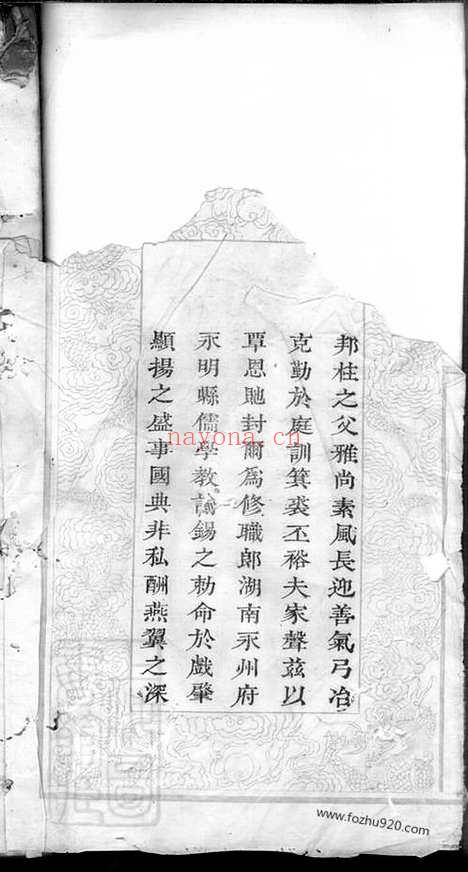 邦柱之父雅尚素風長迎善氣弓冶
克勤於庭訓箕裘丕裕夫家聲茲以
覃恩貤封爾為修職郎湖南永州府
永明縣儒學教諭錫之勅命於戲肇
顯揚之盛事國典非私酬燕翼之深
nayona.cn
www.fozhu920.com